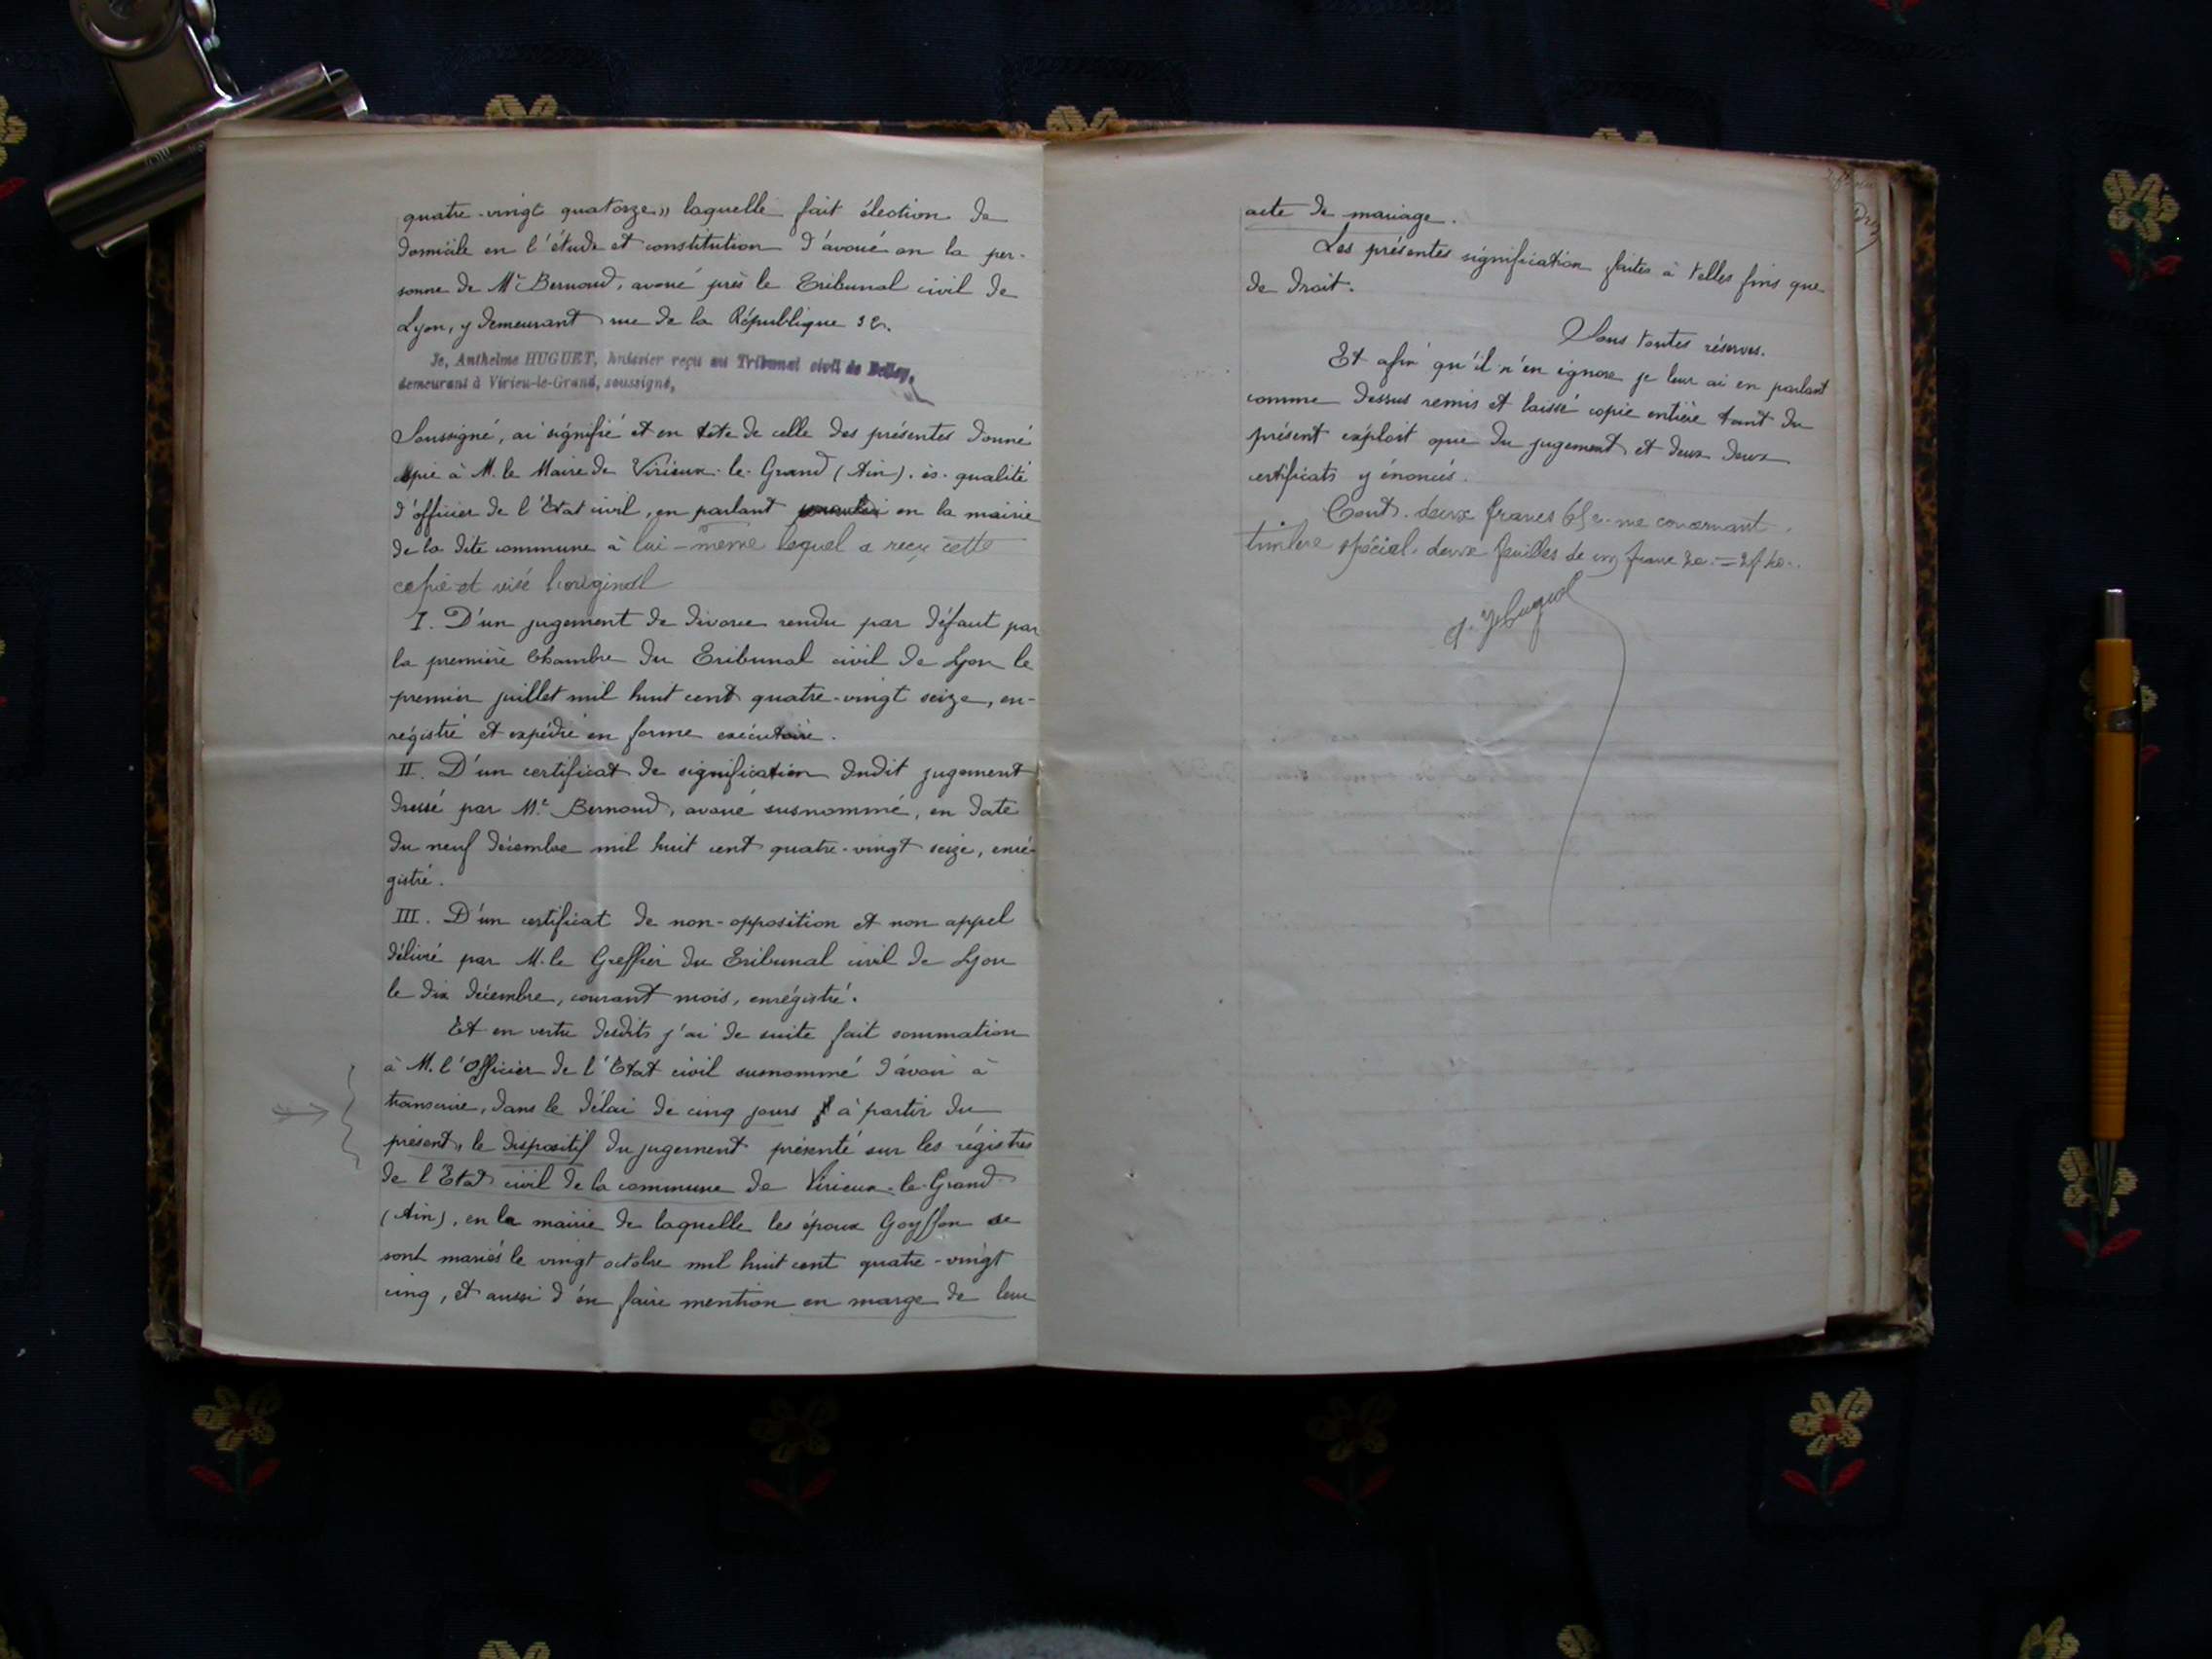 quatre-vingt quatorze » laquelle fait élection de
domicile en l'étude et constitution d'avoué en la per-
sonne de Me Bernoud, avoué près le Tribunal civil de
Lyon, y demeurant rue de la République 32.
Je, Anthelme HUGUET, huissier reçu au Tribunal civil de Belley,
demeurant à Virieu-le-Grand, soussigné,
Soussigné, ai signifié et en tête de celle des présentes donné
copie à M. le Maire de Virieux-le-Grand (Ain). ès-qualité
d'officier de l'Etat civil, en parlant en la mairie
de la dite commune à lui-même lequel a reçu cette
copie et visé l'original
I. D'un jugement de divorce rendu par défaut par
la première Chambre du Tribunal civil de Lyon le
premier juillet mil huit cent quatre-vingt seize, en-
régistré et expédié en forme exécutoire.
II. D'un certificat de signification dudit jugement
dressé par Me Bernoud, avoué susnommé, en date
du neuf décembre mil huit cent quatre-vingt seize, enré-
gistré.
III. D'un certificat de non-opposition et non appel
délivré par M. le Greffier du Tribunal civil de Lyon
le dix décembre, courant mois, enrégistré.
Et en vertu desdits j'ai de suite fait sommation
à M. l'Officier de l'Etat civil susnommé d'avoir à
transcrire, dans le délai de cinq jours à partir du
présent, le dispositif du jugement présenté sur les régistres
de l'Etat civil de la commune de Virieux-le-Grand
(Ain), en la mairie de laquelle les époux Goyffon se
sont mariés le vingt octobre mil huit cent quatre-vingt
cinq, et aussi d'en faire mention en marge de leur
acte de mariage.
Les présentes signification faites à telles fins que
de droit.
Sous toutes réserves.
Et afin qu'il n'en ignore je leur ai en parlant
comme dessus remis et laissé copie entière tant du
présent exploit que du jugement et deux deux
certificats y énoncés.
Cout. deux francs 65 c. me concernant.
timbre spécial. deux feuilles de un franc 20. = 2f 40.